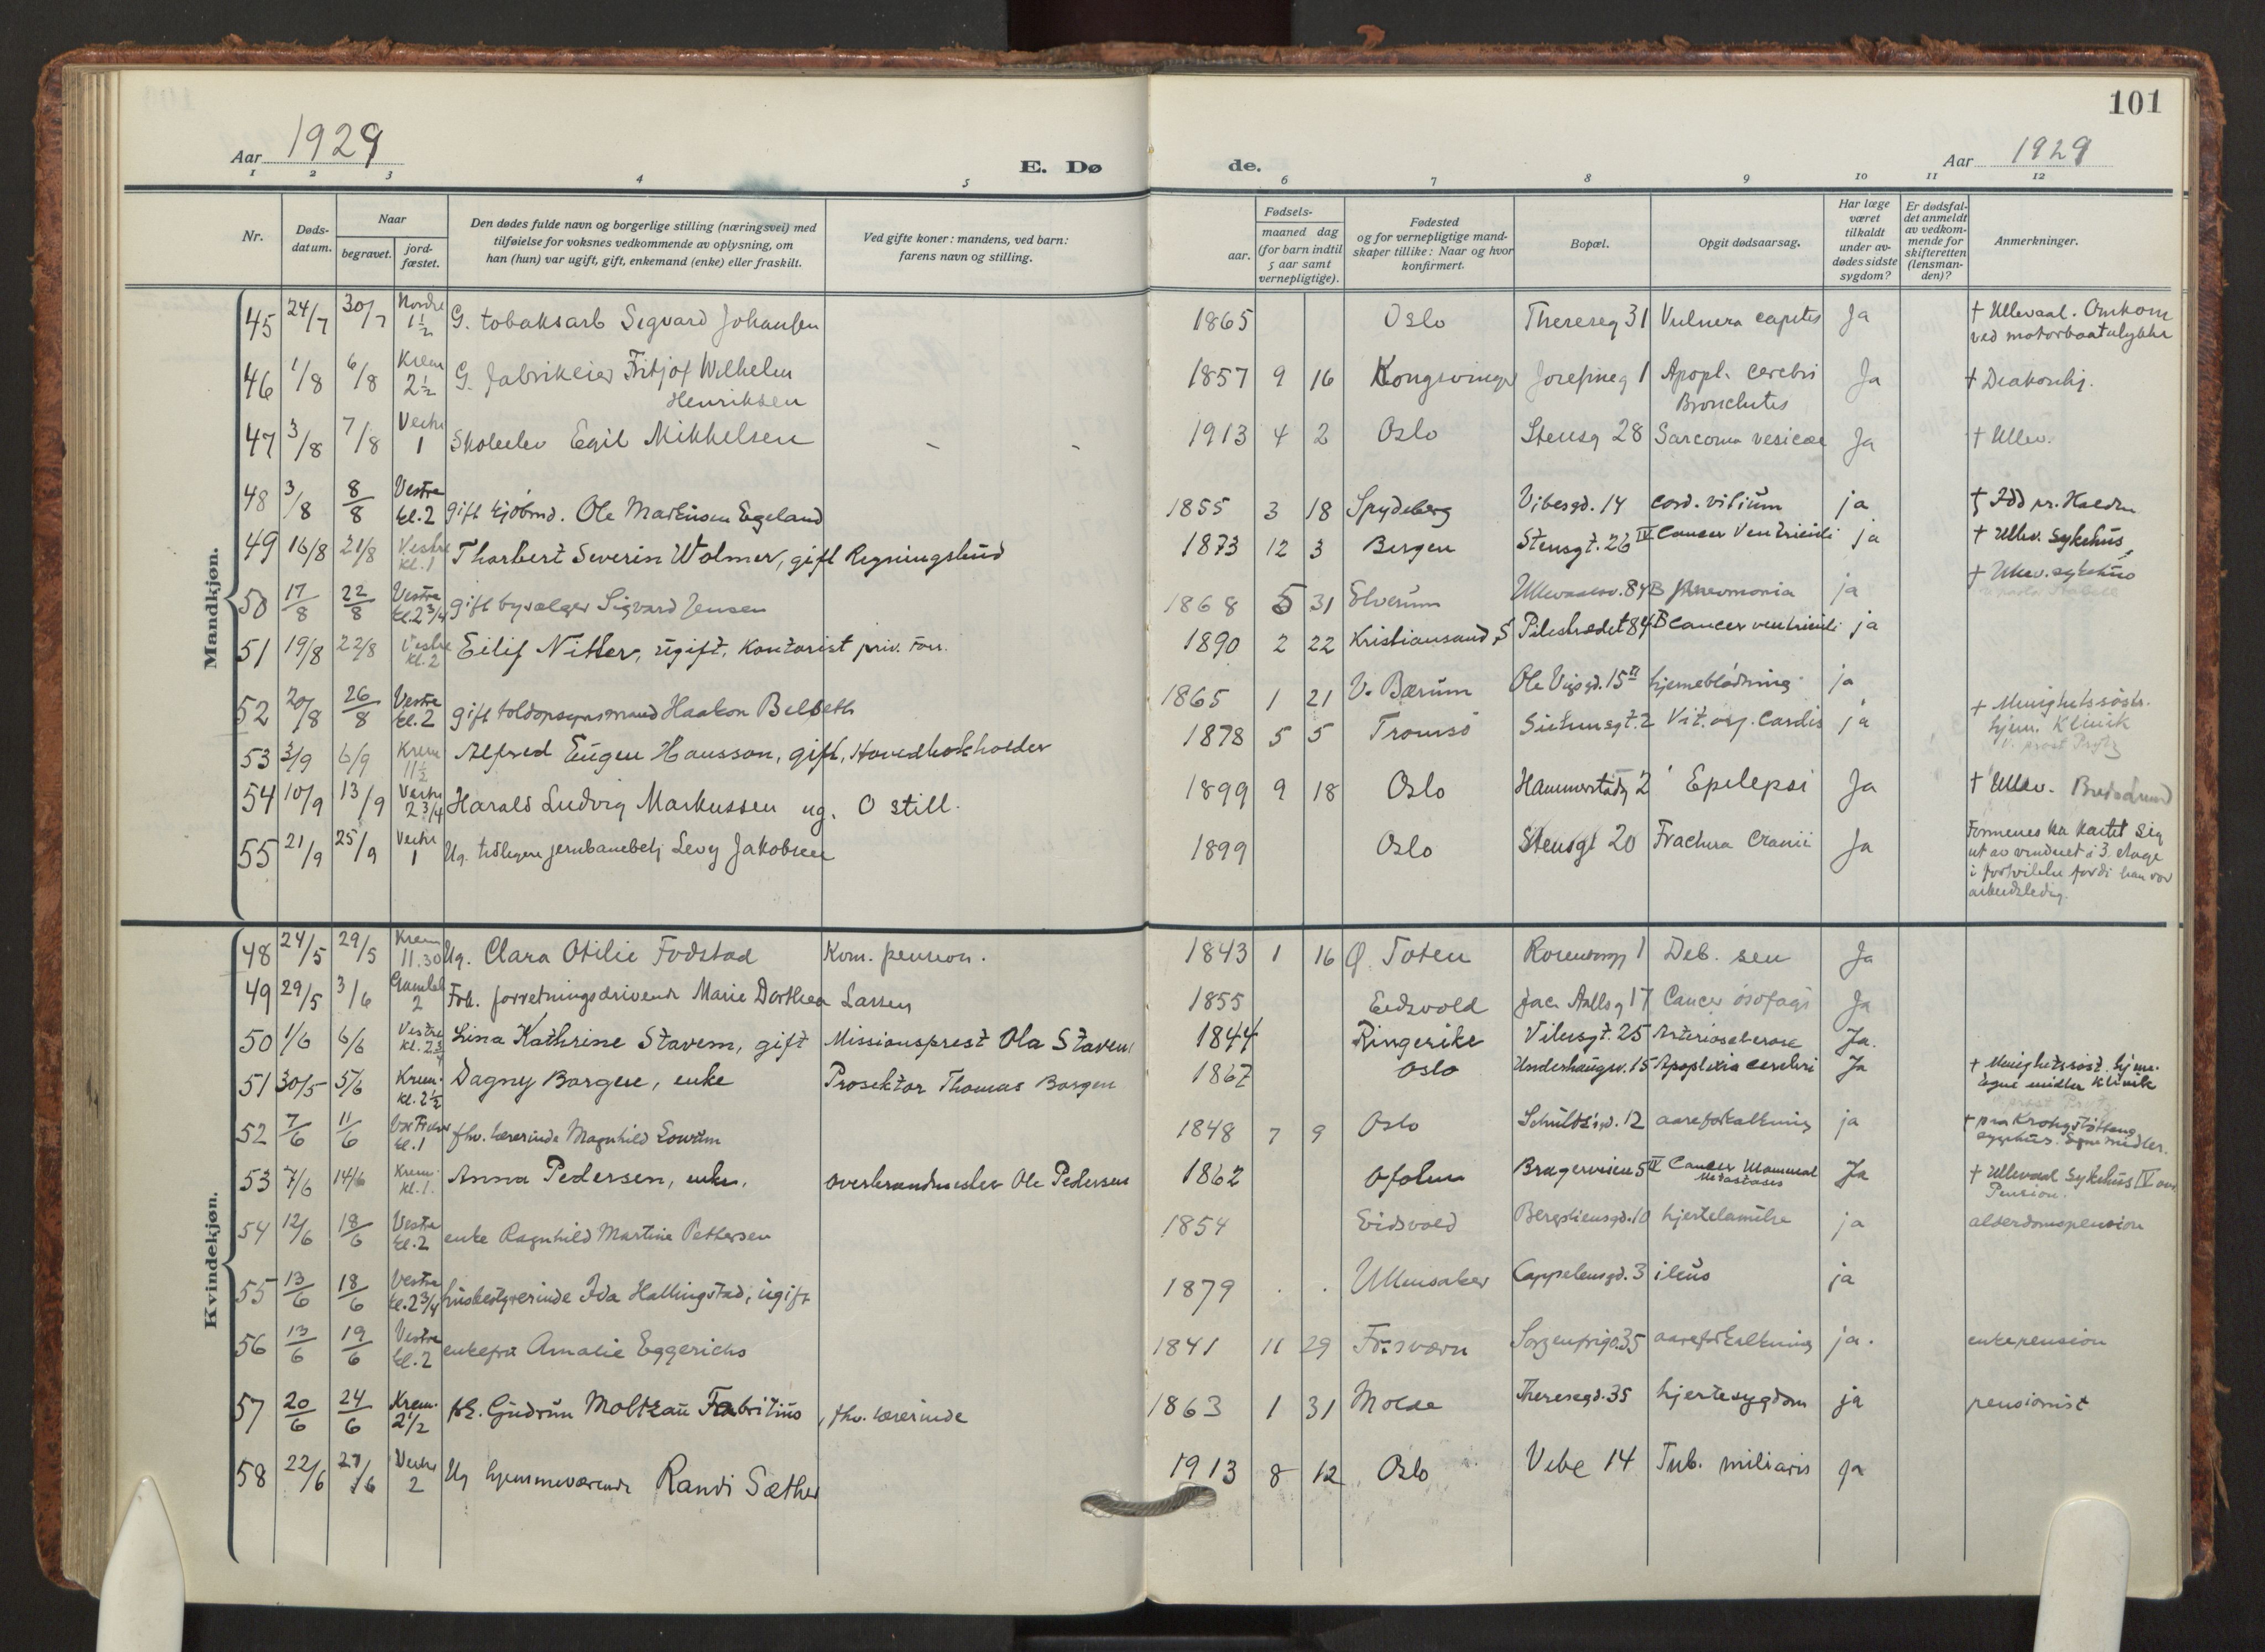 101
Aar 1929
E. Dø de.
Aar 1929
1 2 3 4 5 6 7 8 9 10 11 12
Nr.
Døds-
datum.
Naar
begravet.
jord-
fæstet.
Den dødes fulde navn og borgerlige stilling (næringsvei) med
tilføielse for voksnes vedkommende av oplysning, om
han (hun) var ugift, gift, enkemand (enke) eller fraskilt.
Ved gifte koner: mandens, ved barn:
farens navn og stilling.
Fødsels-
aar.
maaned dag
(for barn indtil
5 aar samt
vernepligtige).
Fødested
og for vernepligtige mand-
skaper tillike: Naar og hvor
konfirmert.
Bopæl.
Opgit dødsaarsag.
Har læge
været
tilkaldt
under av-
dødes sidste
sygdom?
Er dødsfal-
det anmeldt
av vedkom-
mende for
skifteretten
(lensman-
den)?
Anmerkninger.
Mandkjøn.
45 24/7 30/7 Nordre 1½ G. tobaksarb Sigvard Johansen 1865 Oslo Thereseg 31 Vulnera capitis Ja † Ullevaal. Omkom
ved motorbaatulykke
46 1/8 6/8 Krem 2½ G. fabrikeier Fritjof Wilhelm 1857 9 16 Kongsvinger Josefineg 1 Apopl. cerebri Ja † Diakonhj.
Henriksen Bronchitis
47 3/8 7/8 Vestre 1 Skoleelev Egil Mikkelsen - - 1913 4 2 Oslo Stensg 28 Sarcoma vesicae Ja † Ullev.
48 3/8 8/8 Vestre kl. 2 gift kjöbmd. Ole Markusen Egeland 1855 3 18 Spydeberg Vibesgd. 14 cord. vitium ja † Idd pr. Halden
49 16/8 21/8 Vestre kl. 1 Thorbert Severin Wolmer, gift Regningsbud 1873 12 3 Bergen Stensgt. 26 IV Cancer Ventriculi ja † Ullev. Sykehus
50 17/8 22/8 Vestre kl. 2¾ gift bysælger Sigvard Jensen 1868 5 31 Elverum Ullevaalsv. 84 B pneumonia ja † Ullev. sykehus
51 19/8 22/8 Vestre kl. 2 Eilif Nitter, ugift, Kontorist priv. forr. 1890 2 22 Kristiansand S Pilestrædet 84 B cancer ventriculi ja
52 20/8 26/8 Vestre kl. 2 gift toldopsynsmand Haakon Belseth 1865 1 21 V. Bærum Ole Vigsgd. 15 II hjerneblödning ja
53 3/9 6/9 Krem 11½ Alfred Eugen Hansson, gift, Hovedbokholder 1878 5 5 Tromsö Suhmsgt. 2 Vit. org. Cordis ja † Menighetssöstr.
hjem. Klinik
54 10/9 13/9 Vestre 2¾ Harald Ludvig Markussen ug. O still. 1899 9 18 Oslo Hammerstadg 2 Epilepsi Ja † Ullev.
55 21/9 25/9 Vestre 1 Ug. tidligere jernbanebetj Levy Jakobsen 1899 Oslo Stensgt 20 Fractura Cranii Ja Formenes ha kastet sig
ut av vinduet i 3. etage
i fortvilelse fordi han var
arbeidsledig.
Kvindekjøn.
48 24/5 29/5 Krem 11.30 Ug. Clara Otilie Fodstad Kom. pension. 1843 1 16 Ø. Toten Rosenborgg 1 Deb. sen Ja
49 29/5 3/6 Gamleb 2 Frk. forretningsdrivende Marie Dorthea Larsen 1855 Eidsvold Jac. Aallsg 17 Cancer ösofagi Ja
50 1/6 6/6 Vestre kl. 2¾ Lina Kathrine Stavem, gift Missionsprest Ola Stavem 1844 Ringerike Vibesgt. 25 Arteriosclerose Ja.
51 30/5 5/6 Krem. kl. 2½ Dagny Borgen, enke Prosektor Thomas Borgen 1867 Oslo Underhaugsv. 15 Apoplexia cerebri Ja † Menighetssöst. hjem.
Egne midler Klinik
52 7/6 11/6 Vor Frelser kl. 1 fhv. lærerinde Magnhild Lowum 1848 7 9 Oslo Schultz'sgd. 12 aareforkalkning ja † paa Krohgstöttens
sygehus. Egne midler.
53 7/6 14/6 Krem. kl. 1. Anna Pedersen, enke. overbrandmester Ole Pedersen 1862 Bragerveien 5 IV Cancer Mammae Metastases Ja † Ullevaal Sykehus IV avd.
Pension.
54 12/6 18/6 Vestre kl. 2 enke Ragnhild Martine Pettersen 1854 Eidsvold Bergsliensgd. 10 hjertelamelse ja alderdomspension
55 13/6 18/6 Vestre kl. 2¾ husbestyrerinde Ida Hallingstad, ugift 1879 . . Ullensaker Cappelensgd. 3 ileus ja
56 13/6 19/6 Vestre kl. 2 enkefru Amalie Eggerichs 1841 11 29 Sorgenfrigd. 35 aareforkalkning ja. enkepension
57 20/6 24/6 Krem. 2½ frk. Gudrun Moltzau Fabritius, fhv. lærerinde 1863 1 31 Molde Theresegd. 35 hjertesygdom ja pensionist
58 22/6 27/6 Vestre 2 Ug hjemmeværende Randi Sæther 1913 8 12 Oslo Vibe 14 Tub. miliaris Ja